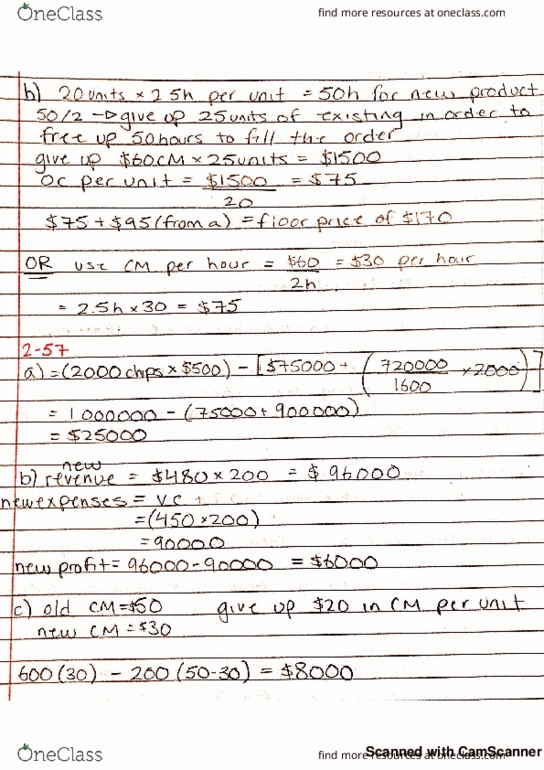 OneClass
find more resources at oneclass.com
b) 20 units × 2.5h per unit = 50h for new product
50/2 → give up 25 units of existing in order to
free up 50 hours to fill the order
give up $60CM × 25 units = $1500
OC per unit = $1500 = $75
20
$75 + $95 (from a) = floor price of $170
OR use CM per hour = $60 = $30 per hour
2h
= 2.5h × 30 = $75
2-57
a) = (2000 chps × $500) - [$75000 + (720000 × 2000)]
1600
= 1000000 - (75000 + 900000)
= $25000
new
b) revenue = $480 × 200 = $96000
new expenses = VC
= (450 × 200)
= 90000
new profit = 96000 - 90000 = $6000
c) old CM = $50 give up $20 in CM per unit
new CM = $30
600 (30) - 200 (50-30) = $8000
OneClass
find more resources at oneclass.com
Scanned with CamScanner